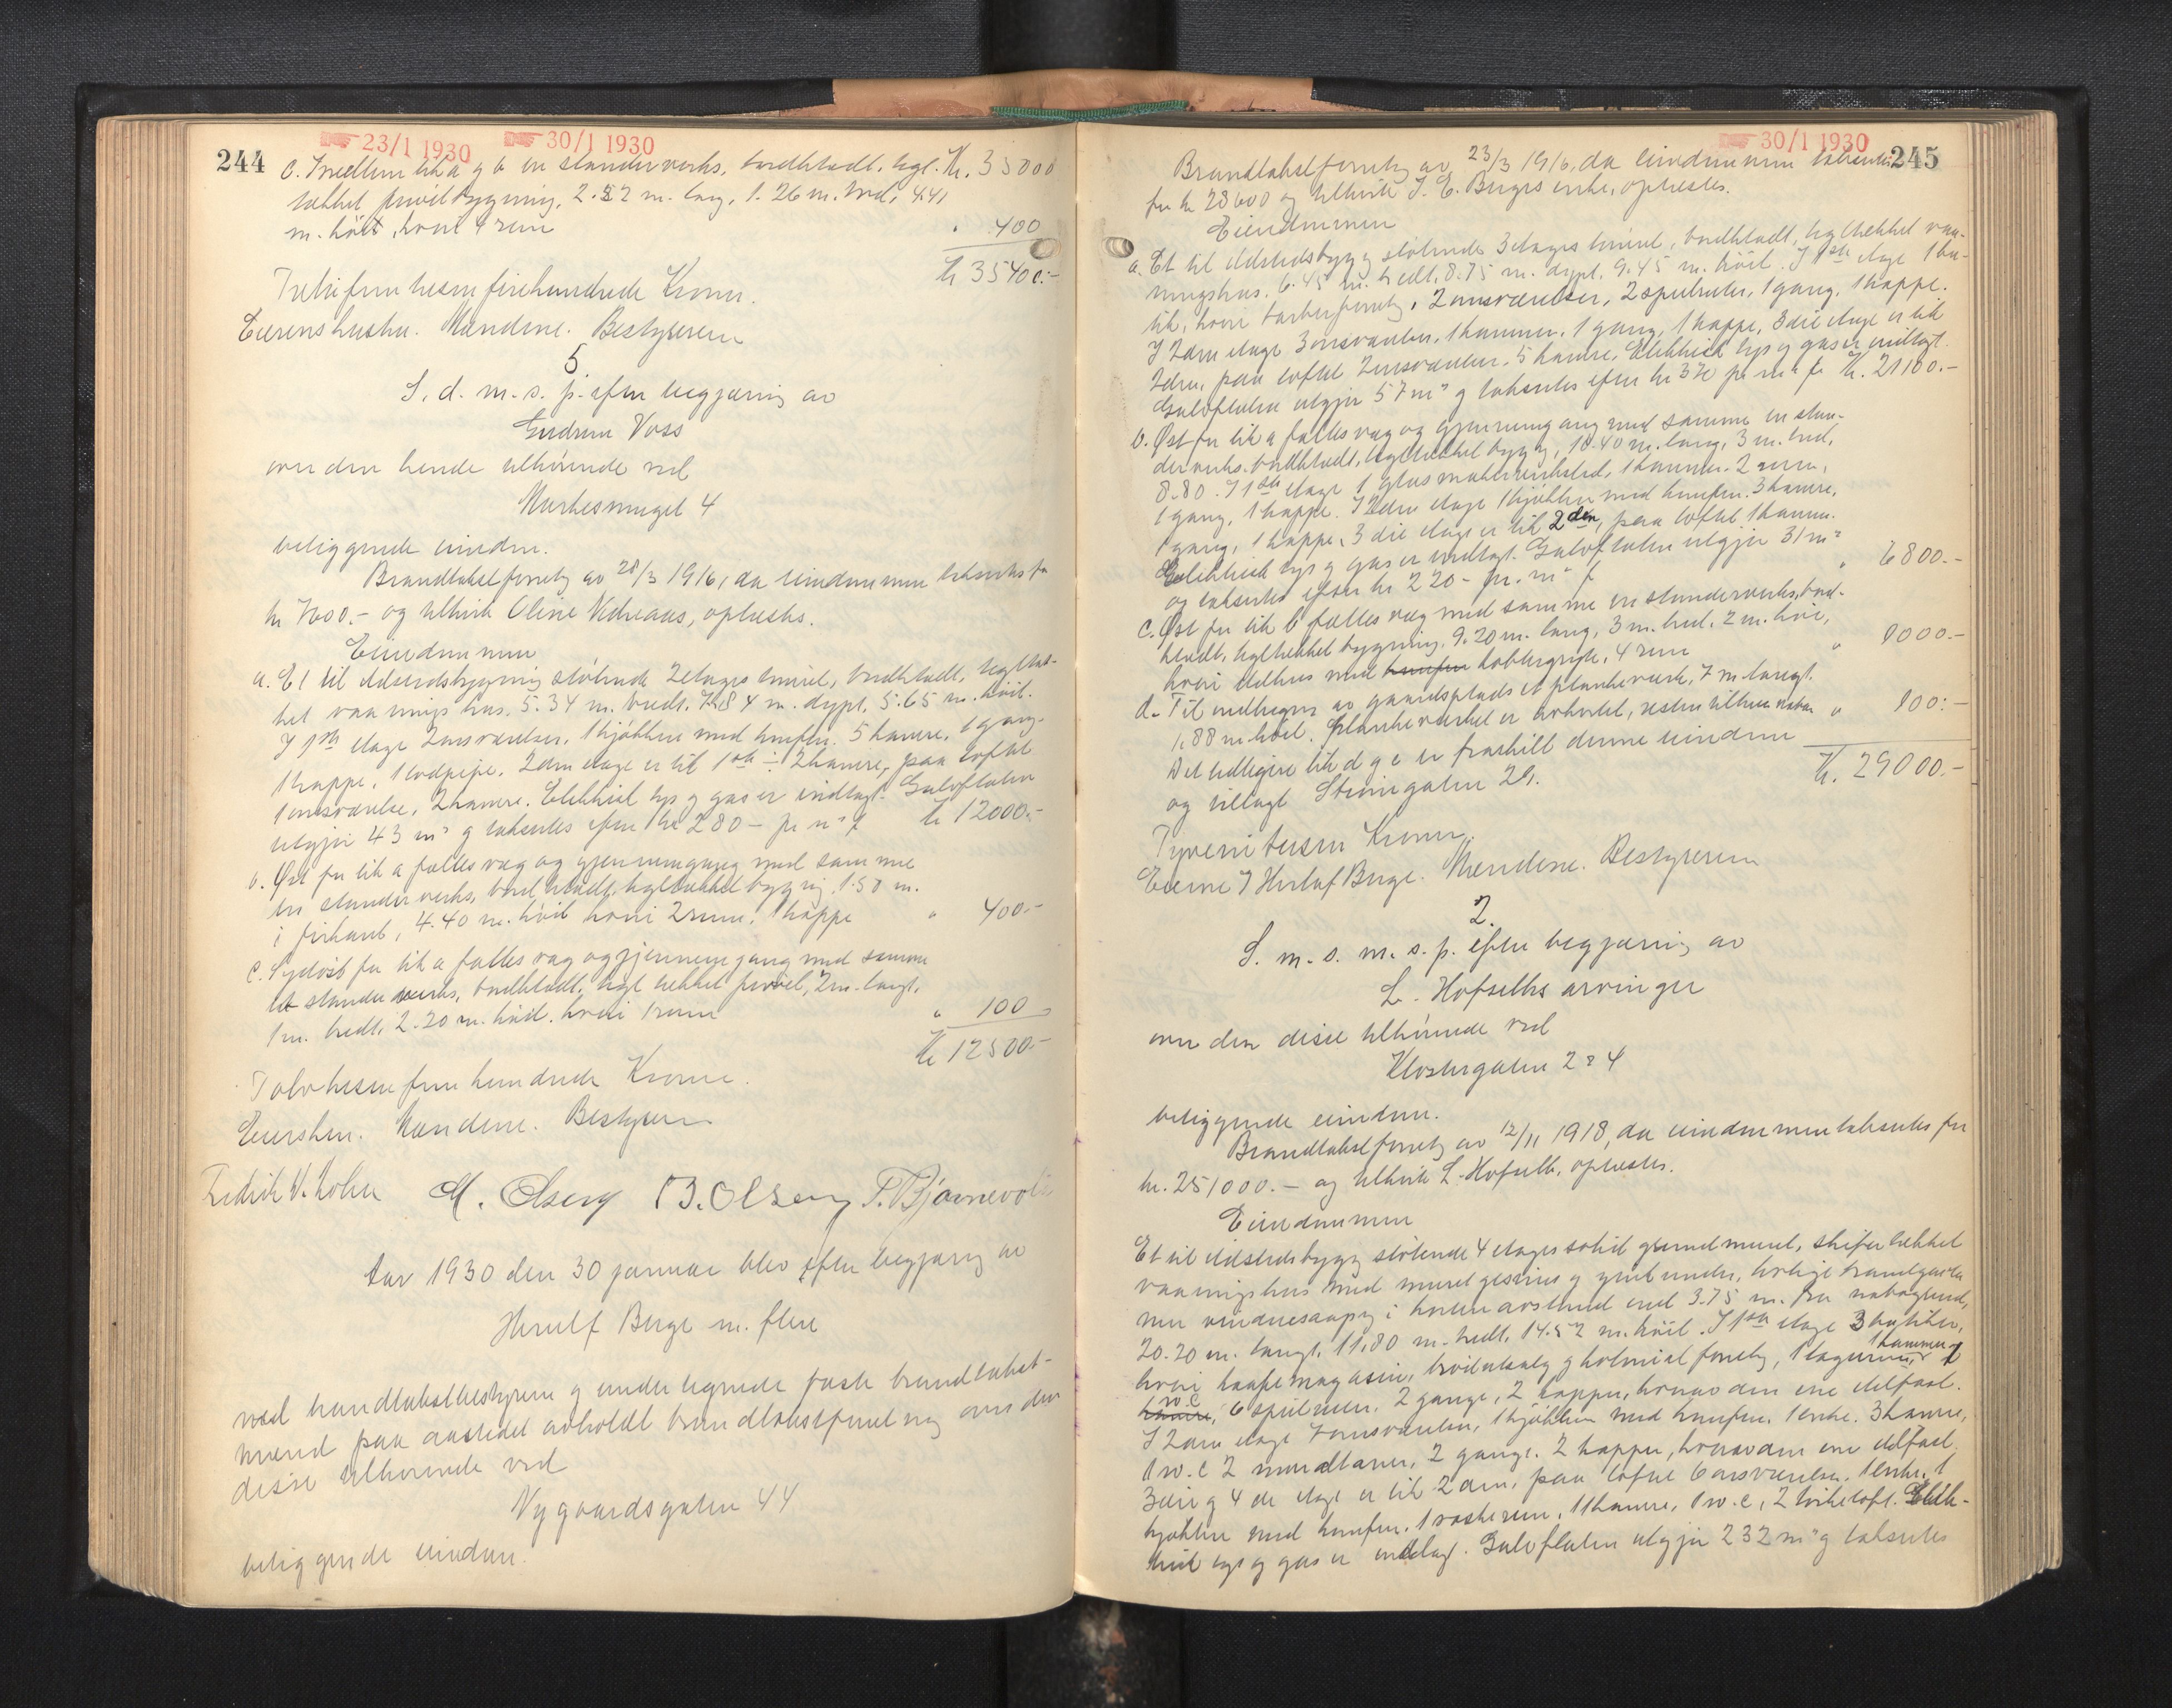 23/1 1930 30/1 1930
244
c. Imellem lit a og b en standerverks, bordklædt, tegl- Kr. 35000
tækket privetbygning, 2.82 m. lang, 1.26 m. bred, 4.41
m. høit, hvori 4 rum " 400
Kr 35400:-
Trettifem tusen firehundrede Kroner.
Eierens hustru. Mændene. Bestyreren
5
S. d. m. s. p. efter begjæring av
Gudrun Voss
over den hende tilhørende ved
Markesmuget 4
beliggende eiendom.
Brandtakstforretn av 28/3 1916, da eiendommen takseres for
kr 7600.- og tilhørte Oline Vedreaas, oplæstes.
Eiendommen
a. Et til ildstedsbygning stötende 2etages tømret, bordklædt, tegltæk-
ket vaaningshus, 5.34 m. bredt, 7.84 m. dypt, 5.65 m. høit.
I 1ste etage 2 onsværelser, 1 kjøkken med komfur. 5 kamre, 1 gang,
1 trappe, 1 lodpipe. 2den etage er lik 1ste ÷ 2 kamre, paa loftet
1 onsværelse, 2 kamre. Elektrisk lys og gas er indlagt. Gulvflaten
utgjør 43 m² og takseres efter kr 280 - pr m² f kr 12000.-
b. Øst for lit a fælles væg og gjennemgang med samme
en standerverks, bordklædt, tegltækket bygnig, 1.50 m.
i firkant, 4.40 m. høit hvori 2 rum, 1 trappe " 400.-
c. Sydøst for lit a fælles væg og gjennemgang med samme
et standerverks, bordklædt, tegltækket privet, 2 m. langt,
1 m. bredt, 2.20 m. høit. hvori 1 rum " 100
Kr 12500-
Tolvtusen femhundrede Kroner.
Eiersken. Mændene. Bestyreren
Fredrik V. Lohne M. Olsen B. Olsen P. Bjørnevoll
Aar 1930 den 30 januar blev efter begjæring av
Herulf Berge m. flere
ved brandtakstbestyrere og undertegnede faste brandtakst-
mænd paa aastedet avholdt brandtakstforretning over den
disse tilhørende ved
Nygaardsgaten 44
beliggende eiendom.
30/1 1930
245
Brandtakstforretn av 23/3 1916, da eiendommen takseres
for kr 28600 og tilhørte J. E. Berges enke, oplæstes.
Eiendommen
a. Et til ildstedsbygg stötende 3etages tømret, bordklædt, tegltækket vaa-
ningshus, 6.45 m. bredt, 8.75 m. dypt, 9.45 m. høit. I 1ste etage 1 bu-
tik, hvori barberforretn, 2 onsværelser, 2 spiserum, 1 gang, 1 trappe.
I 2den etage 3 onsværelser, 1 kammer. 1 gang, 1 trappe, 3die etage er lik
2den, paa loftet 2 onsværelser. 5 kamre. Elektrisk lys og gas er indlagt.
Gulvflaten utgjør 57 m² og takseres efter kr 370 pr m² f Kr. 21100.-
b. Øst for lit a fælles væg og gjennemgang med samme en stan-
derverks, bordklædt, tegltækket bygg, 10.40 m. lang, 3 m. bred,
8.80. I 1ste etage 1 glasmalerverksted, 1 kammer. 2 rum,
1 gang, 1 trappe. I 2den etage 1 kjøkken med komfur. 3 kamre,
1 gang, 1 trappe, 3die etage er lik 2den, paa loftet 1 kammer.
Elektrisk lys og gas er indlagt. Gulvflaten utgjør 31 m²
og takseres efter kr 220- pr. m² f " 6800.-
c. Øst for lit b fælles væg med samme en standerverks, bord-
klædt, tegltækket bygning, 9.20 m. lang, 3 m. bred. 2 m. høi,
hvori ildhus med komfur kobbergryte, 4 rum " 1000.-
d. Til indhegn av gaardsplads et plankeværk, 7 m. langt,
1.88 m høit. Plankeverket er avkortet, resten tilhører nabo " 100:-
Det tidligere lit d og e er fraskilt denne eiendom
og tillagt Strømgaten 29. Kr. 29000.-
Tyveni tusen Kroner.
Eierne v/ Herluf Berge. Mændene. Bestyreren
2.
S. m. s. m. s. p. efter begjæring av
L. Hofseths arvinger
over den disse tilhørende ved
Klostergaten 2 & 4
beliggende eiendom.
Brandtakstforretn av 12/11 1918, da eiendommen takseres for
kr. 251000.- og tilhørte L. Hofseth, oplæstes.
Eiendommen
Et til ildstedsbygg stötende 4 etages solid grundmuret, skifertækket
vaaningshus med muret gesims og gavl under, lovlige brandgavler
men vinduesaapn i kortere avstand end 3.75 m. fra nabogrund,
20.20 m. langt, 11.80 m. bredt, 14.52 m. høit. I 1ste etage 3 butiker,
hvori kaapemagasin, brødutsalg og kolonial forretn, 1 lagerrum, 1 kammer 1
w.c. kamre, 6 spiserum, 2 gange, 2 trapper, hvorav den ene ildfast.
I 2den etage 7 onsværelser, 1 kjøkken med komfur. 1 enkr. 3 kamre,
1 w.c 2 muraltaner, 2 gange. 2 trapper, hvorav den ene ildfast.
3die og 4de etage er lik 2den, paa loftet 6 onsværelser, 1 enkr. 1
kjøkken med komfur. 1 vaskerum, 11 kamre, 1 w.c, 2 tørkeloft. Elek-
trisk lys og gas er indlagt. Gulvflaten utgjør 232 m² og takseres